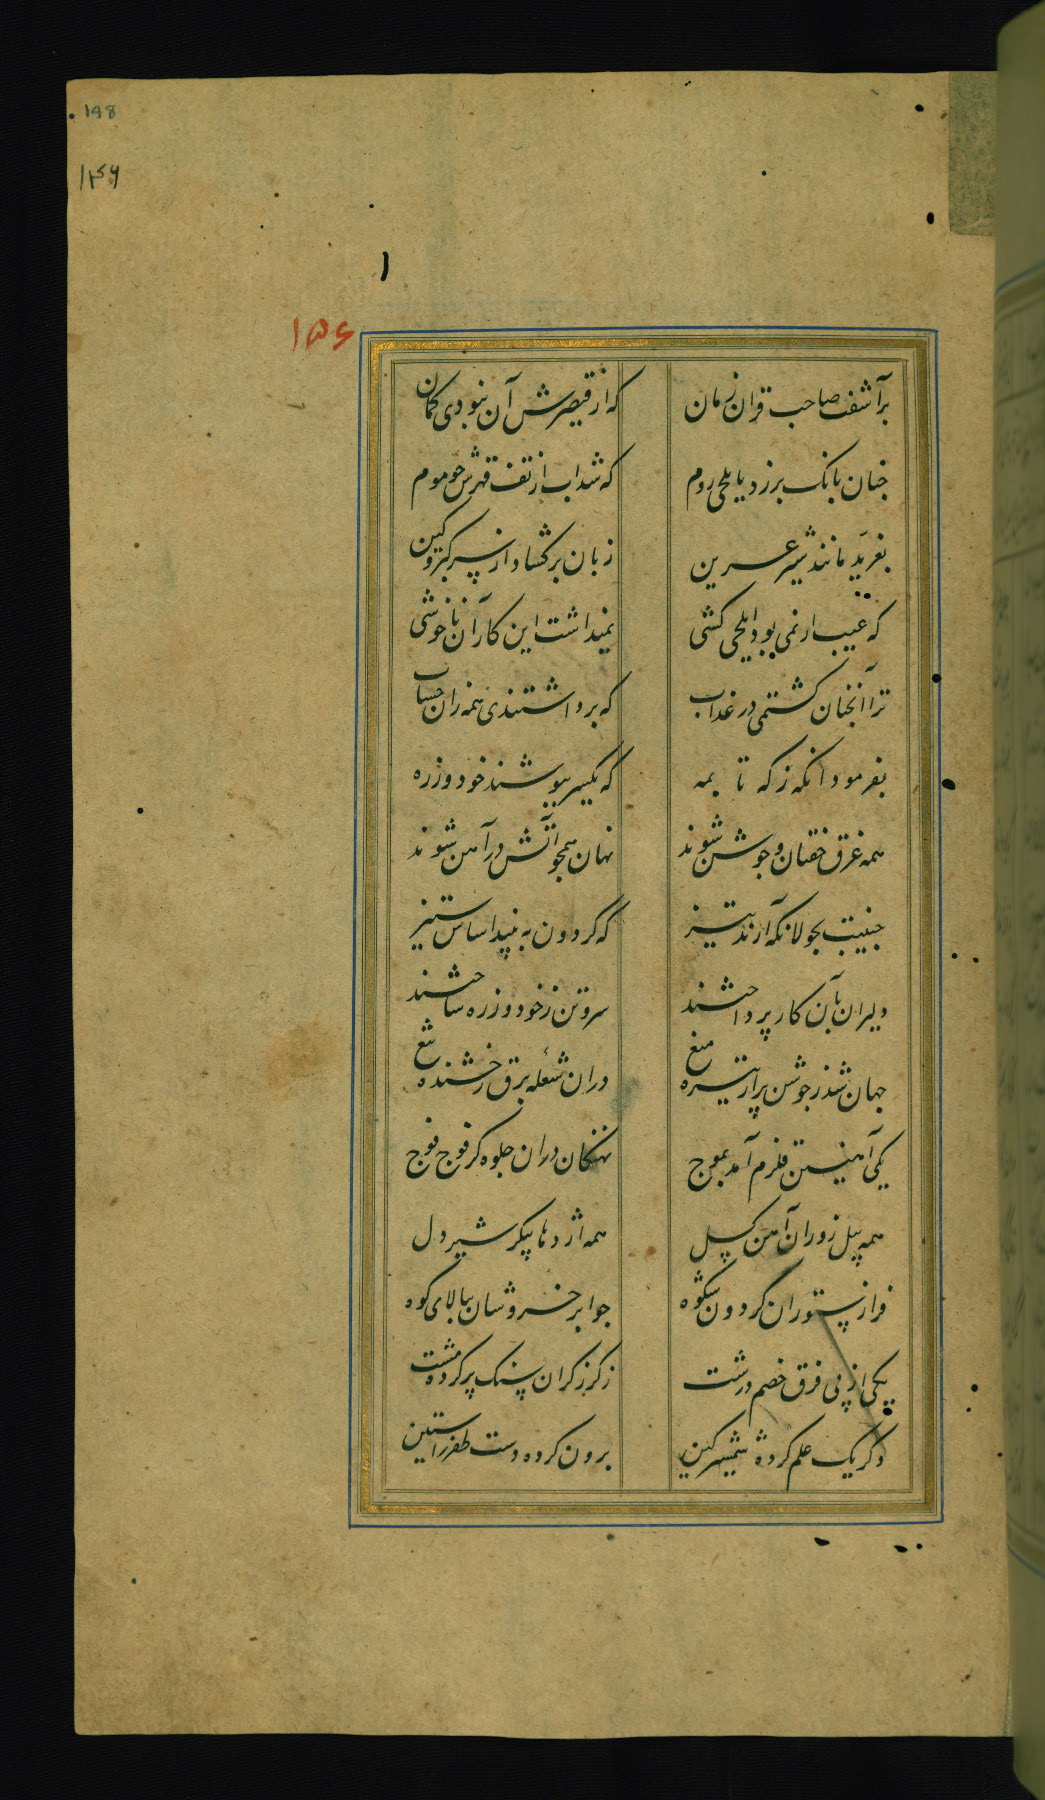 198
۱۴۶
۱
۱۵۶
برآشفت صاحب قران زمان که از قیصرش آن نبودی گمان
چنان بانک برزد بایلچی روم که شد آب از تف قهرش چو موم
بغرید مانند شیر عرین زبان برکشاد از سر کبر و کین
که عیب ار نمی بود ایلچی کشی نمیداشت این کار آن ناخوشی
ترا آنچنان کشتمی در عذاب که برداشتندی همه زان حساب
بفرمود انکه ز که تا بمه که یکسر بپوشند خود و زره
همه غرق خفتان و جوشن شوند نهان همچو آتش در آهن شوند
جنیبت بجولانکه آرند تیز که کردون به بیند اساس ستیز
دلیران بآن کار پرداختند سر و تن ز خود و زره ساختند
جهان شد ز جوشن پر از تیره میغ دران شعله برق رخشنده تیغ
یکی آهنین قلزم آمد بموج نهنکان دران جلوه کر فوج فوج
همه پیل زوران آهن کسل همه اژدها پیکر شیر دل
فراز ستوران کردون شکوه چو ابر خروشان ببالای کوه
یکی از پی فرق خصم درشت ز کرز کران سنک پر کرده مشت
دکر یک علم کرده شمشیر کین برون کرده دست ظفر زاستین